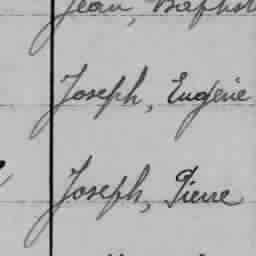 Jean, Baptist
Joseph, Eugène
Joseph, Pierre